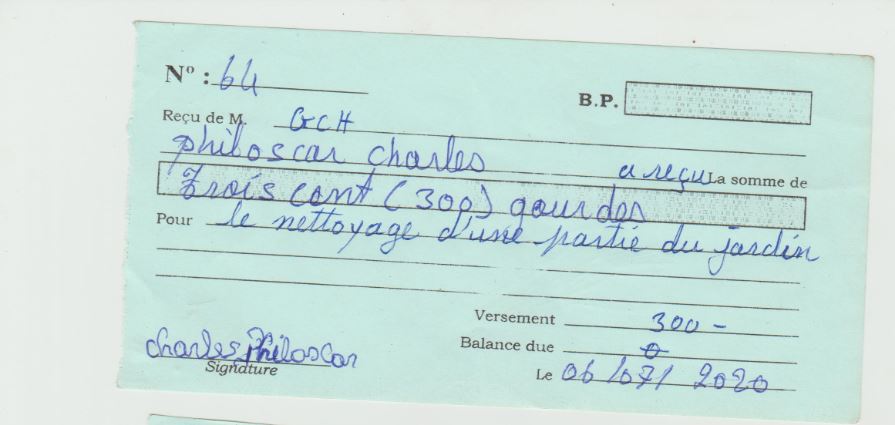 Nº : 64
B.P.
Reçu de M. GCH
philoscar charles a reçu La somme de
Trois cent (300) gourdes
Pour le nettoyage d'une partie du jardin
Versement 300 -
Balance due 0
charles philoscar
Signature
Le 06/07/2020